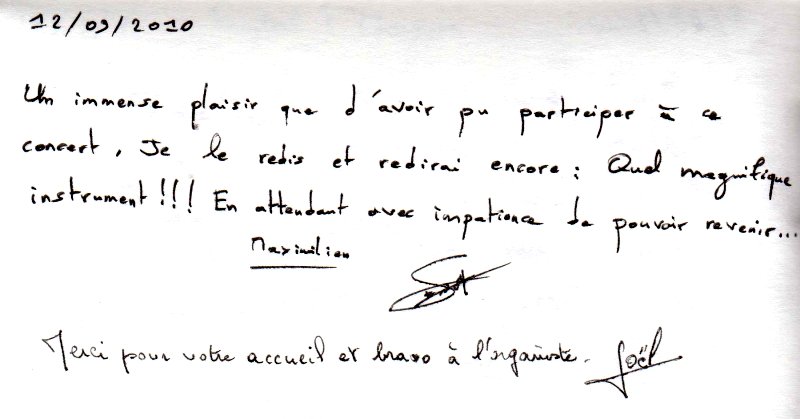 12/09/2010
Un immense plaisir que d'avoir pu participer à ce
concert. Je le redis et redirai encore : Quel magnifique
instrument !!! En attendant avec impatience de pouvoir revenir...
Maximilien
Merci pour votre accueil et bravo à l'organiste. Joël